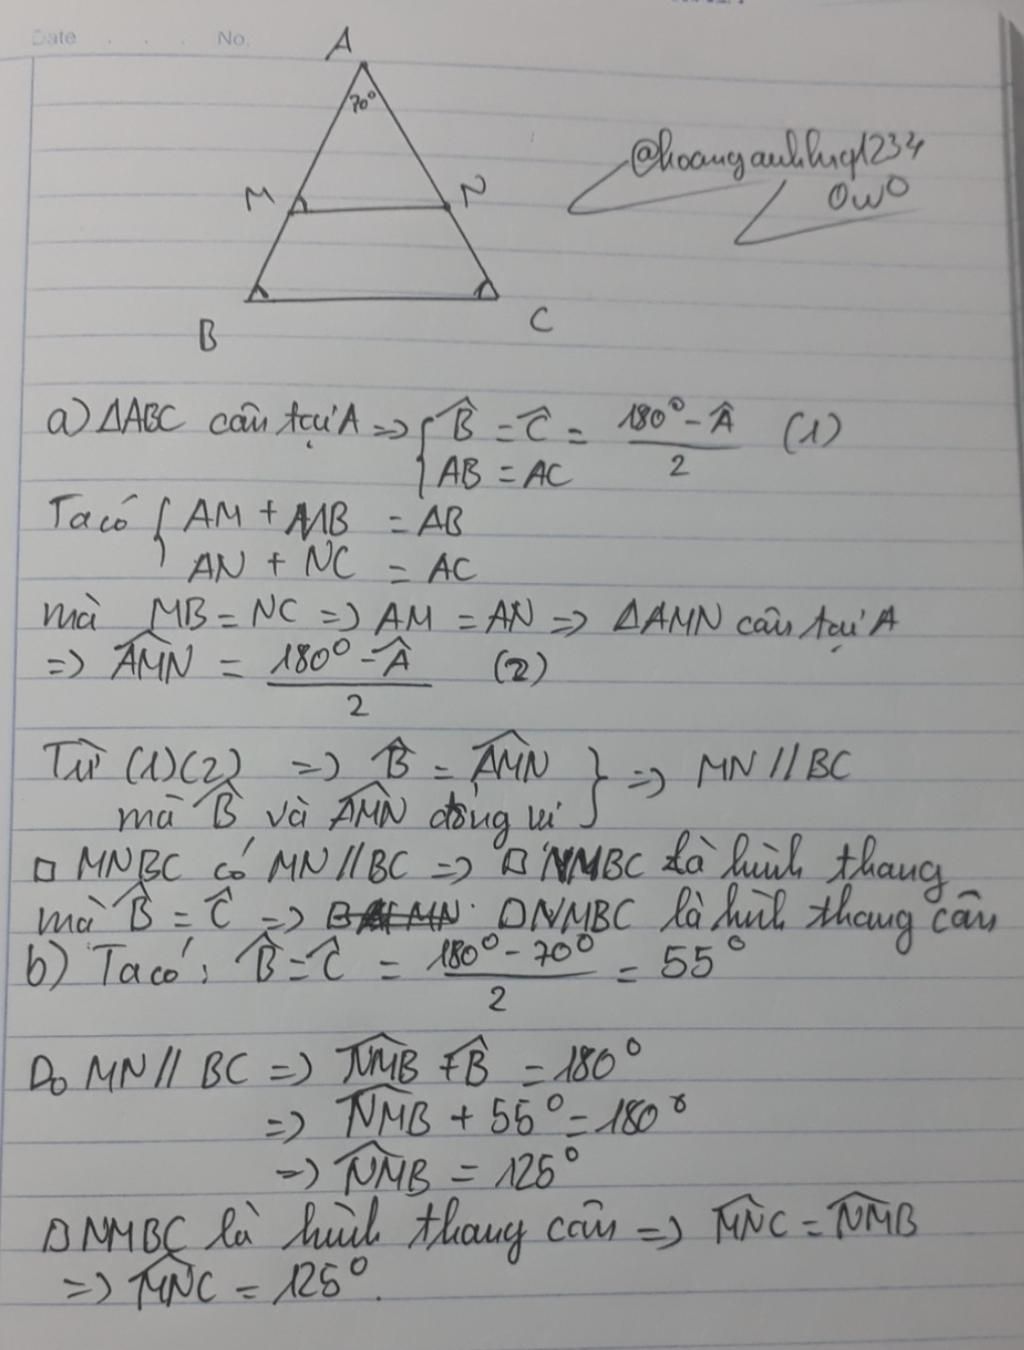 Date . . . No.
A
70°
M
N
B
C
@hoanganhhuy1234
OwO
a) ΔABC cân tại A => { B̂ = Ĉ = (180° - Â)/2 (1)
AB = AC
Ta có { AM + MB = AB
AN + NC = AC
mà MB = NC => AM = AN => ΔAMN cân tại A
=> ∠AMN = (180° - Â)/2 (2)
Từ (1)(2) => B̂ = ∠AMN } => MN // BC
mà B̂ và ∠AMN đồng vị
□ MNBC có MN // BC => □ NMBC là hình thang
mà B̂ = Ĉ => □NMBC là hình thang cân
b) Ta có: B̂ = Ĉ = (180° - 70°)/2 = 55°
Do MN // BC => ∠NMB + B̂ = 180°
=> ∠NMB + 55° = 180°
=> ∠NMB = 125°
□NMBC là hình thang cân => ∠MNC = ∠NMB
=> ∠MNC = 125°.